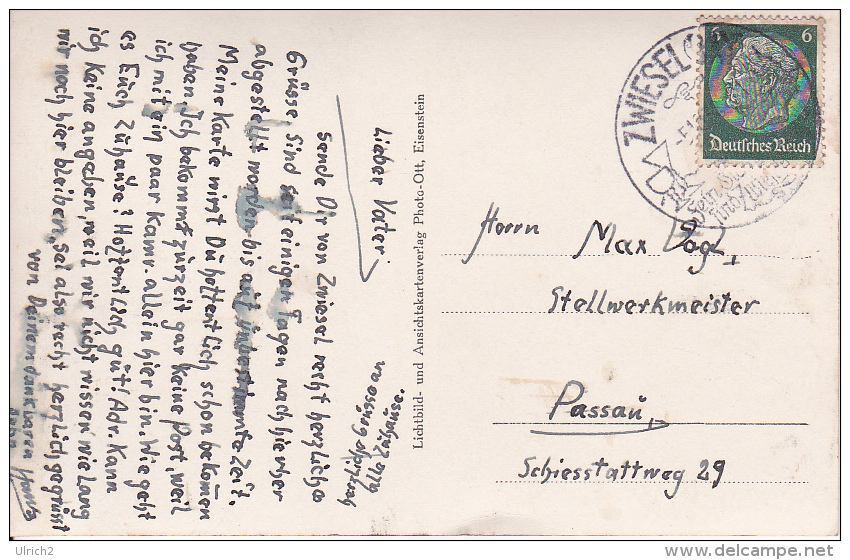 Lieber Vater!
sende Dir von Zwiesel recht herzliche
Grüsse sind seit einigen Tagen nach hierher
abgestellt worden bis auf unbestimmte Zeit.
Meine Karte wirst Du hoffentlich schon bekomen
haben. Ich bekomme zurzeit gar keine Post, weil
ich mit ein paar Kamr. allein hier bin. Wie geht
es Euch Zuhause? Hoffentlich gut! Adr. Kann
ich Keine angeben, weil wir nicht wissen wie Lang
wir noch hier bleiben, sei also recht herzlich gegrüsst
von Deinem dankbaren
Sohn Hans
Grüsse an
alle Zuhause.
Lichtbild- und Ansichtskartenverlag Photo-Ott, Eisenstein
ZWIESEL
6 6
Deutsches Reich
Herrn Max Vogl,
Stellwerkmeister
Passau,
Schiesstattweg 29
Ulrich2
delcampe.net